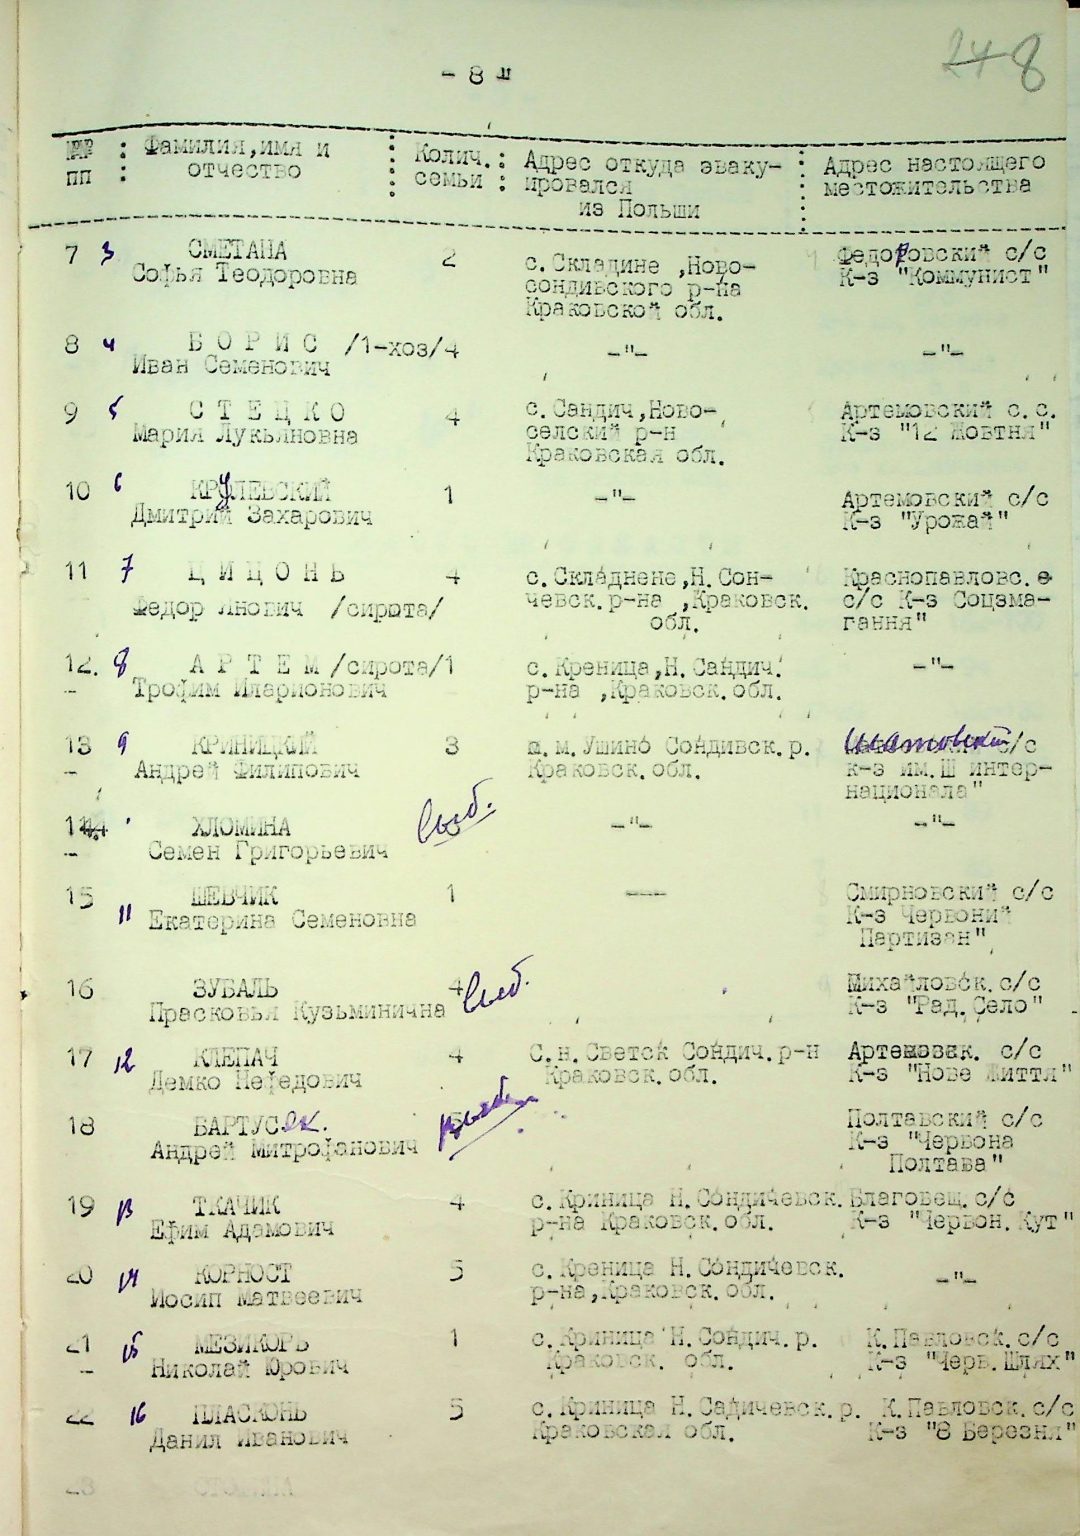 248
- 8 -
№№ : Фамилия,имя и : Колич. : Адрес откуда эваку- : Адрес настоящего
пп : отчество : семьи : ировался : местожительства
из Польши
7 3 СМЕТАНА 2 с.Складине ,Ново- Федоровский с/с
Софья Теодоровна сондивского р-на К-з "Коммунист"
Краковской обл.
8 4 Б О Р И С /1-хоз/4 -"- -"-
Иван Семенович
9 5 С Т Е Ц К О 4 с.Сандич,Ново- Артемовский с.с.
Мария Лукьяновна селский р-н К-з "12 Жовтня"
Краковская обл.
10 6 КРУЛЕВСКИЙ 1 -"- Артемовский с/с
Дмитрий Захарович К-з "Урожай"
11 7 Ц И Ц О Н Ь 4 с.Складнене,Н.Сон- Краснопавловс.
Федор Янович /сирота/ чевск.р-на ,Краковск. с/с К-з Соцзма-
обл. гання"
12. 8 А Р Т Е М /сирота/1 с.Креница,Н.Сандич. -"-
- Трофим Иларионович р-на ,Краковск.обл.
13 9 КРИНИЦКИЙ 3 м.Ушино Сондивск.р. с/с
- Андрей Филипович Краковск.обл. к-з им.Ш интер-
национала"
14 ХЛОМИНА выб. -"- -"-
- Семен Григорьевич
15 ШЕВЧИК 1 --- Смирновский с/с
11 Екатерина Семеновна К-з Червоний
Партизан"
16 ЗУБАЛЬ 4 выб. Михайловск.с/с
Прасковья Кузьминична К-з "Рад.Село"
17 12 КЛЕПАЧ 4 С.н.Светск Сондич.р-н Артемовск. с/с
Демко Нефедович Краковск.обл. К-з "Нове Життя"
18 БАРТУСЕК. выб. Полтавский с/с
Андрей Митрофанович К-з "Червона
Полтава"
19 13 ТКАЧИК 4 с.Криница Н.Сондичевск. Благовещ.с/с
Ефим Адамович р-на Краковск.обл. К-з "Червон.Кут"
20 14 КОРНОСТ 5 с.Креница Н.Сондичевск. -"-
Иосип Матвеевич р-на,Краковск.обл.
21 15 МЕЗИКОРЬ 1 с.Криница Н.Сондич.р. К.Павловск.с/с
- Николай Юрович Краковск. обл. К-з "Черв.Шлях"
22 16 ПЛАСКОНЬ 5 с.Криница Н.Садичевск.р. К.Павловск.с/с
Данил Иванович Краковская обл. К-з "8 Березня"
23